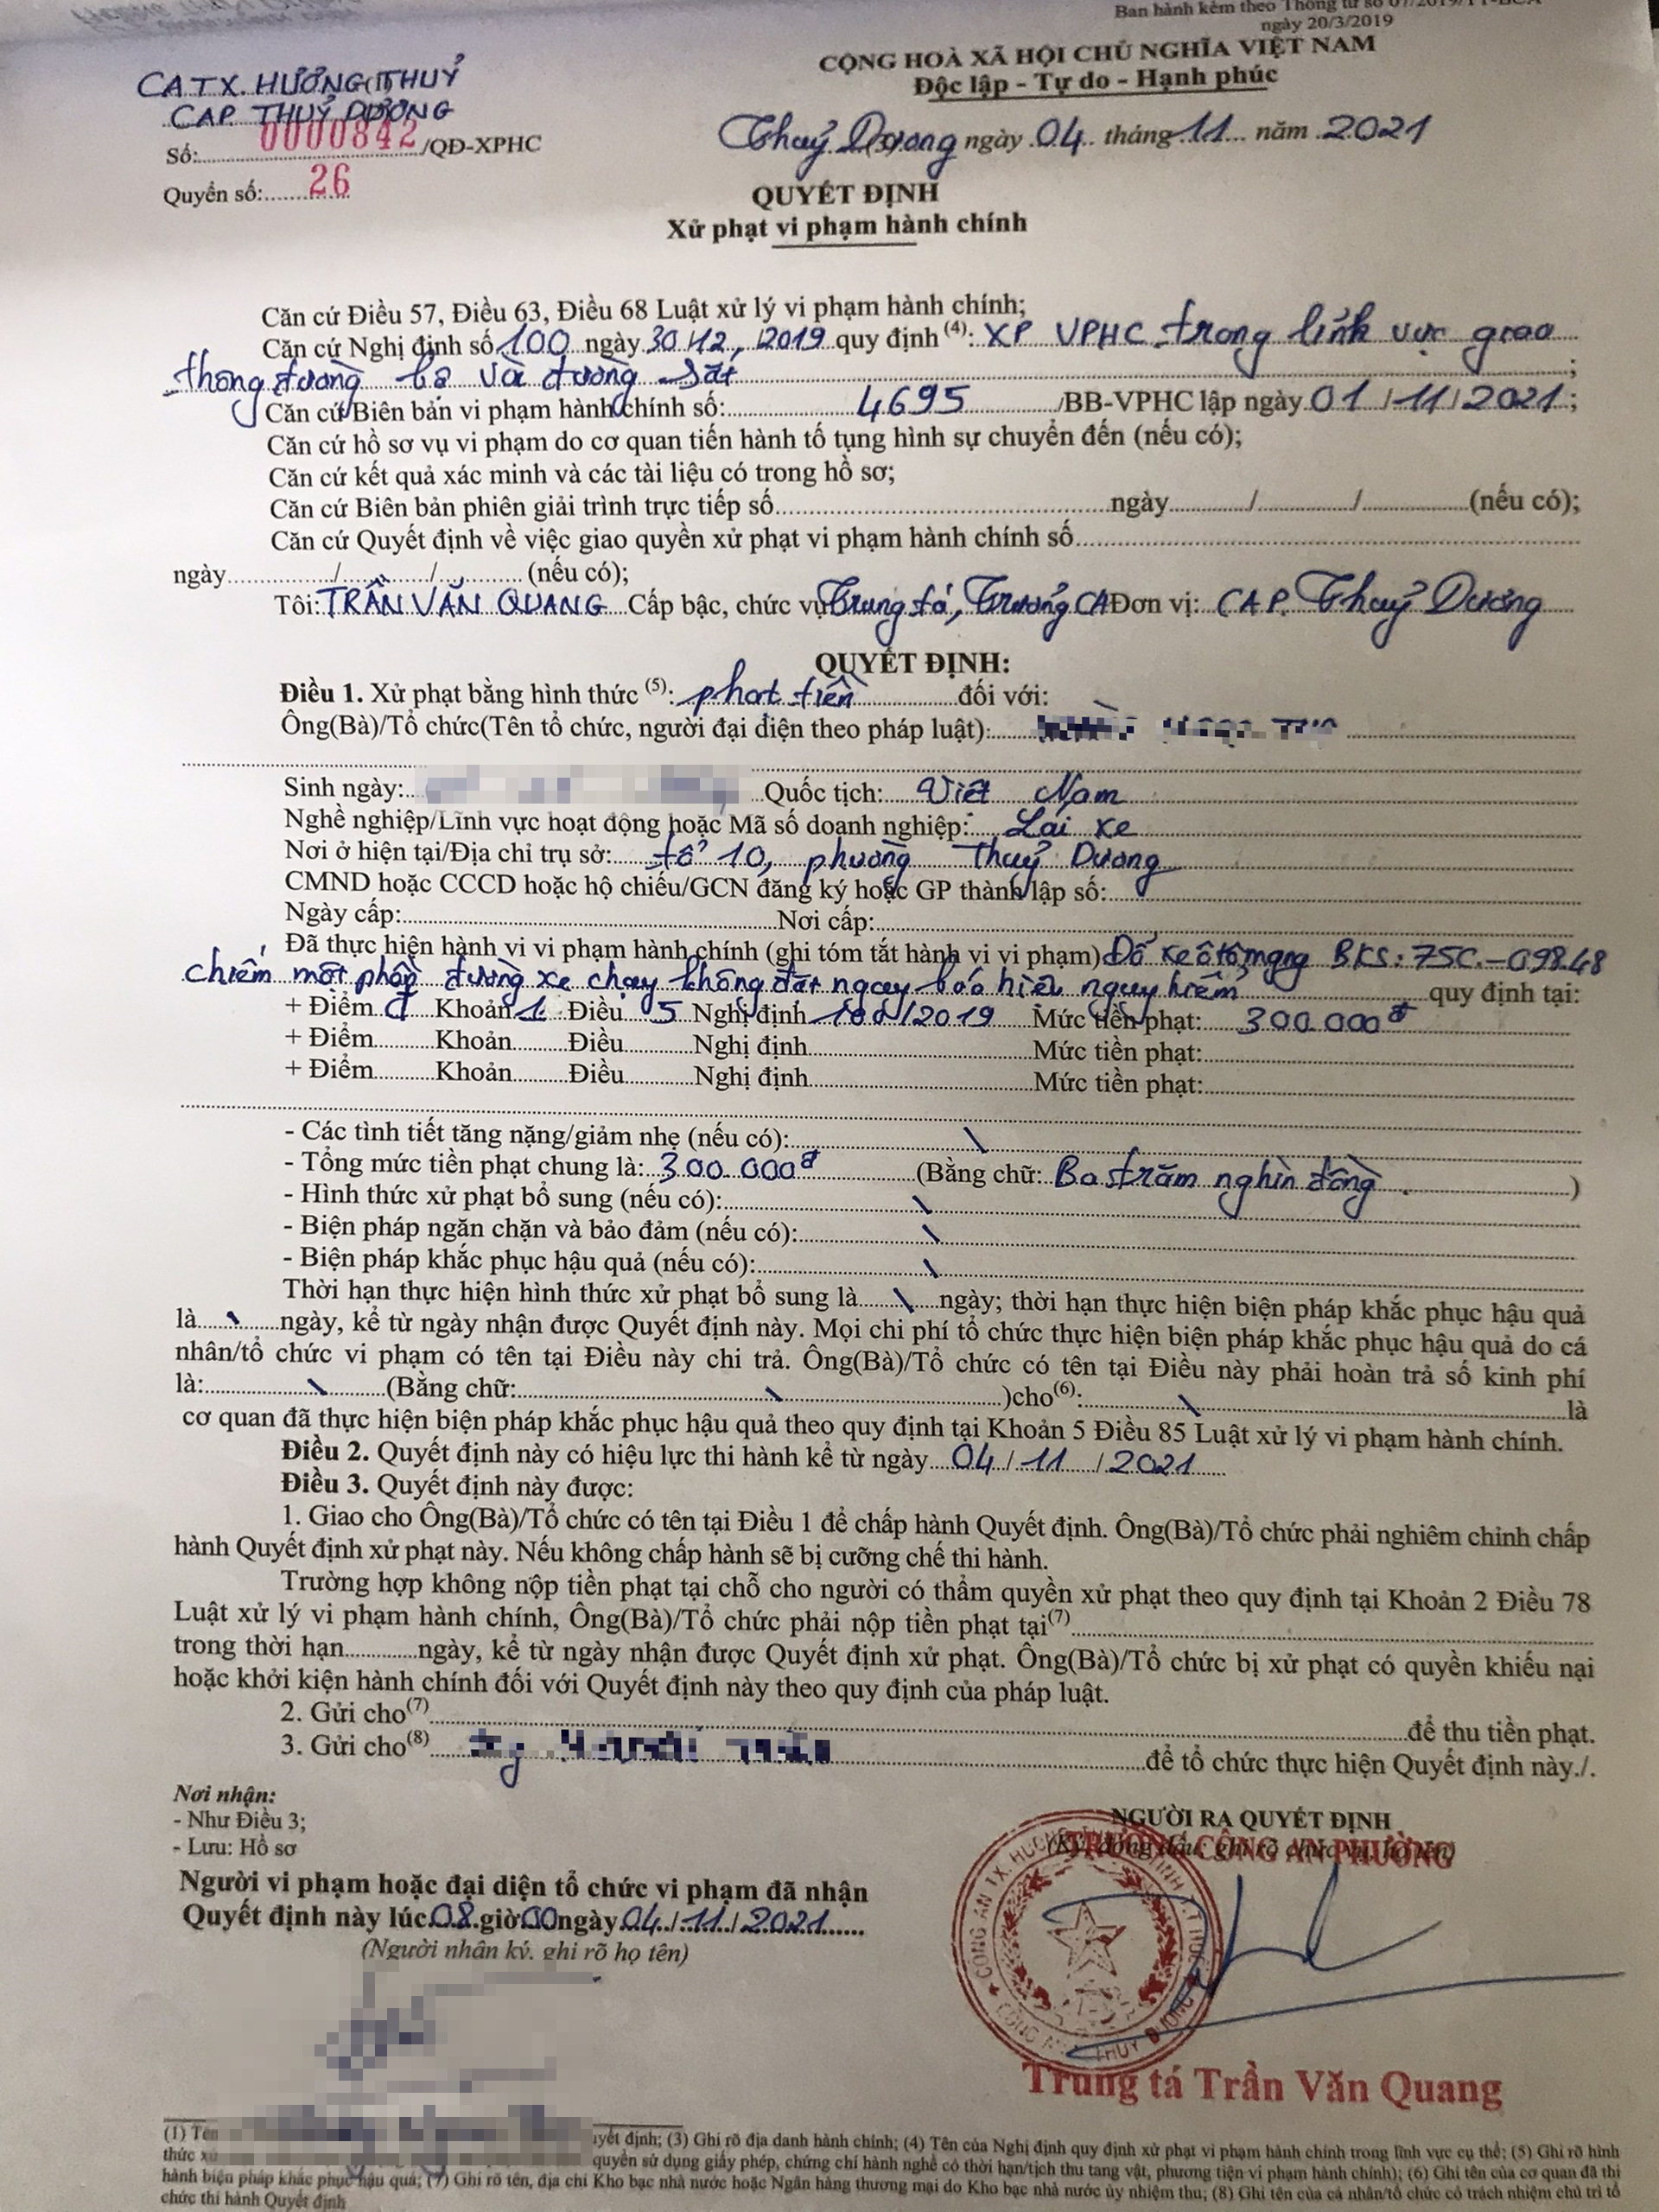 Ban hành kèm theo Thông tư số 07/2019/TT-BCA
ngày 20/3/2019
CATX. HƯƠNG(1)THUỶ
CAP. THUỶ DƯƠNG
CỘNG HOÀ XÃ HỘI CHỦ NGHĨA VIỆT NAM
Độc lập - Tự do - Hạnh phúc
Số: 0000842/QĐ-XPHC
Quyển số: 26
Thuỷ Dương ngày 04 tháng 11 năm 2021
QUYẾT ĐỊNH
Xử phạt vi phạm hành chính
Căn cứ Điều 57, Điều 63, Điều 68 Luật xử lý vi phạm hành chính;
Căn cứ Nghị định số 100 ngày 30/12/2019 quy định (4): XP VPHC trong lĩnh vực giao
thông đường bộ và đường sắt;
Căn cứ Biên bản vi phạm hành chính số: 4695/BB-VPHC lập ngày 01/11/2021;
Căn cứ hồ sơ vụ vi phạm do cơ quan tiến hành tố tụng hình sự chuyển đến (nếu có);
Căn cứ kết quả xác minh và các tài liệu có trong hồ sơ;
Căn cứ Biên bản phiên giải trình trực tiếp số..........ngày........../........../..........(nếu có);
Căn cứ Quyết định về việc giao quyền xử phạt vi phạm hành chính số..........
ngày........../........../..........(nếu có);
Tôi: TRẦN VĂN QUANG Cấp bậc, chức vụ Trung tá, Trưởng CA Đơn vị: CAP. Thuỷ Dương
QUYẾT ĐỊNH:
Điều 1. Xử phạt bằng hình thức (5): phạt tiền đối với:
Ông(Bà)/Tổ chức(Tên tổ chức, người đại diện theo pháp luật):
Sinh ngày: Quốc tịch: Việt Nam
Nghề nghiệp/Lĩnh vực hoạt động hoặc Mã số doanh nghiệp: Lái xe
Nơi ở hiện tại/Địa chỉ trụ sở: tổ 10, phường Thuỷ Dương
CMND hoặc CCCD hoặc hộ chiếu/GCN đăng ký hoặc GP thành lập số:..........
Ngày cấp:..........Nơi cấp:..........
Đã thực hiện hành vi vi phạm hành chính (ghi tóm tắt hành vi vi phạm) Đỗ xe ô tô mang BKS: 75C-098.48
chiếm một phần đường xe chạy không đặt ngay báo hiệu nguy hiểm quy định tại:
+ Điểm đ Khoản 1 Điều 5 Nghị định 100/2019 Mức tiền phạt: 300.000đ
+ Điểm......Khoản......Điều......Nghị định..........Mức tiền phạt:..........
+ Điểm......Khoản......Điều......Nghị định..........Mức tiền phạt:..........
- Các tình tiết tăng nặng/giảm nhẹ (nếu có): \
- Tổng mức tiền phạt chung là: 300.000đ (Bằng chữ: Ba trăm nghìn đồng)
- Hình thức xử phạt bổ sung (nếu có): \
- Biện pháp ngăn chặn và bảo đảm (nếu có): \
- Biện pháp khắc phục hậu quả (nếu có): \
Thời hạn thực hiện hình thức xử phạt bổ sung là \ ngày; thời hạn thực hiện biện pháp khắc phục hậu quả
là \ ngày, kể từ ngày nhận được Quyết định này. Mọi chi phí tổ chức thực hiện biện pháp khắc phục hậu quả do cá
nhân/tổ chức vi phạm có tên tại Điều này chi trả. Ông(Bà)/Tổ chức có tên tại Điều này phải hoàn trả số kinh phí
là: \ (Bằng chữ: \ )cho(6): \ là
cơ quan đã thực hiện biện pháp khắc phục hậu quả theo quy định tại Khoản 5 Điều 85 Luật xử lý vi phạm hành chính.
Điều 2. Quyết định này có hiệu lực thi hành kể từ ngày 04/11/2021
Điều 3. Quyết định này được:
1. Giao cho Ông(Bà)/Tổ chức có tên tại Điều 1 để chấp hành Quyết định. Ông(Bà)/Tổ chức phải nghiêm chỉnh chấp
hành Quyết định xử phạt này. Nếu không chấp hành sẽ bị cưỡng chế thi hành.
Trường hợp không nộp tiền phạt tại chỗ cho người có thẩm quyền xử phạt theo quy định tại Khoản 2 Điều 78
Luật xử lý vi phạm hành chính, Ông(Bà)/Tổ chức phải nộp tiền phạt tại(7)..........
trong thời hạn..........ngày, kể từ ngày nhận được Quyết định xử phạt. Ông(Bà)/Tổ chức bị xử phạt có quyền khiếu nại
hoặc khởi kiện hành chính đối với Quyết định này theo quy định của pháp luật.
2. Gửi cho(7)..........để thu tiền phạt.
3. Gửi cho(8)..........để tổ chức thực hiện Quyết định này./.
Nơi nhận:
- Như Điều 3;
- Lưu: Hồ sơ
NGƯỜI RA QUYẾT ĐỊNH
(Ký, đóng dấu, ghi rõ chức vụ, họ tên)
TRƯỞNG CÔNG AN PHƯỜNG
Người vi phạm hoặc đại diện tổ chức vi phạm đã nhận
Quyết định này lúc 08 giờ 00 ngày 04/11/2021
(Người nhận ký, ghi rõ họ tên)
CÔNG AN TX. HƯƠNG THỦY TỈNH T.T HUẾ
CÔNG AN P. THỦY DƯƠNG
Trung tá Trần Văn Quang
(1) Tên yết định; (3) Ghi rõ địa danh hành chính; (4) Tên của Nghị định quy định xử phạt vi phạm hành chính trong lĩnh vực cụ thể; (5) Ghi rõ hình
thức xử quyền sử dụng giấy phép, chứng chỉ hành nghề có thời hạn/tịch thu tang vật, phương tiện vi phạm hành chính); (6) Ghi tên của cơ quan đã thi
hành biện pháp khắc phục hậu quả; (7) Ghi rõ tên, địa chỉ Kho bạc nhà nước hoặc Ngân hàng thương mại do Kho bạc nhà nước ủy nhiệm thu; (8) Ghi tên của cá nhân/tổ chức có trách nhiệm chủ trì tổ
chức thi hành Quyết định